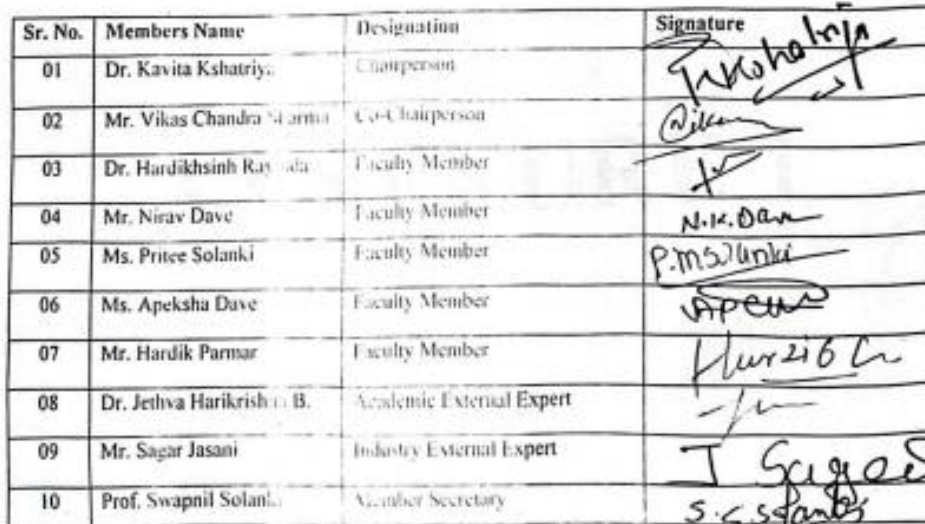 Sr. No. Members Name Designation Signature
01 Dr. Kavita Kshatriya Chairperson
02 Mr. Vikas Chandra Sharma Co-Chairperson
03 Dr. Hardikhsinh Faculty Member
04 Mr. Nirav Dave Faculty Member N.K.Dave
05 Ms. Pritee Solanki Faculty Member P.M.Solanki
06 Ms. Apeksha Dave Faculty Member
07 Mr. Hardik Parmar Faculty Member
08 Dr. Jethva Harikrishna B. Academic External Expert
09 Mr. Sagar Jasani Industry External Expert J Sagar
10 Prof. Swapnil Solanki Member Secretary S.C.Solanki